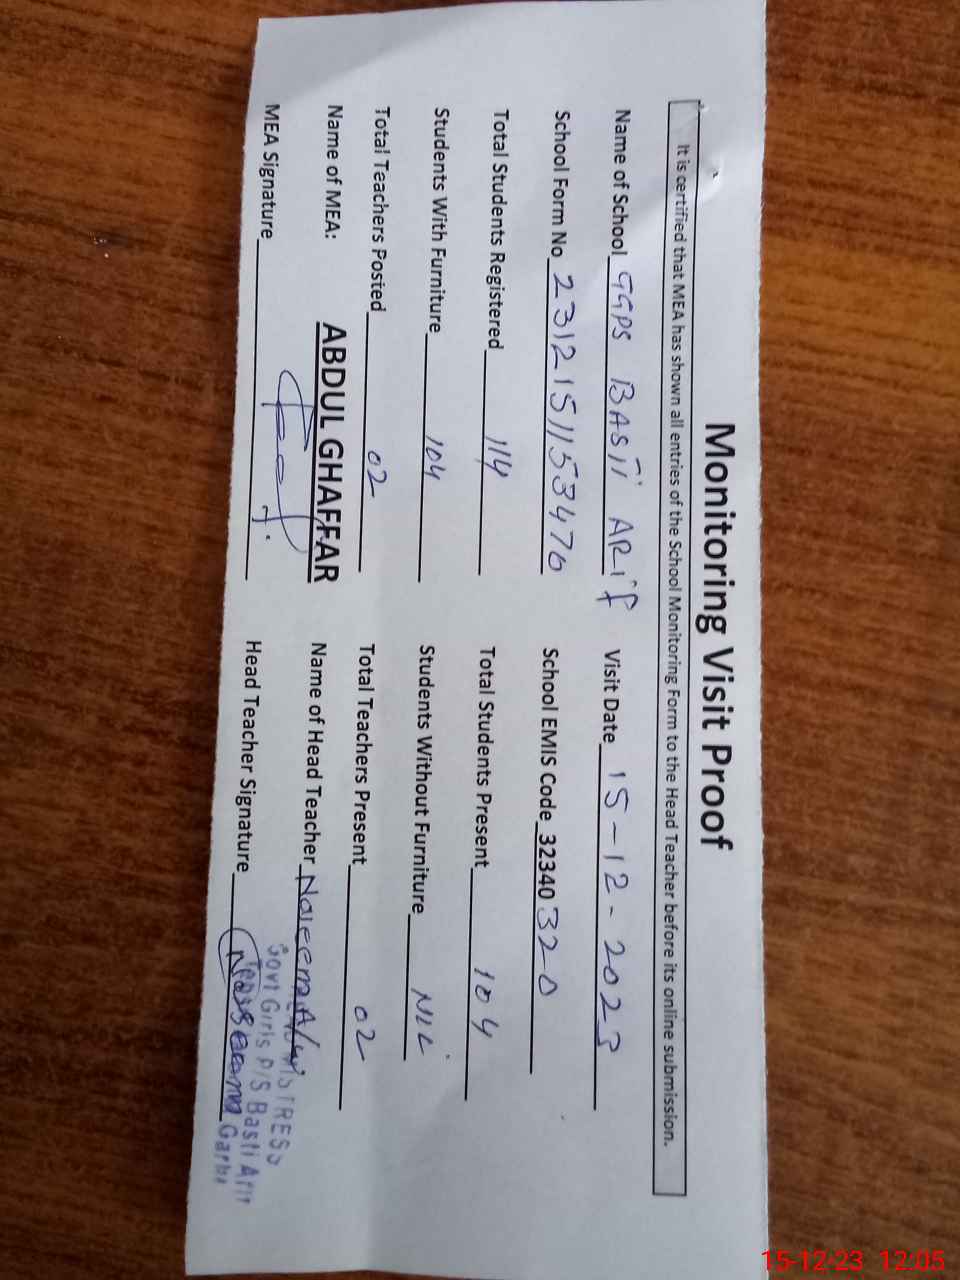 Monitoring Visit Proof
It is certified that MEA has shown all entries of the School Monitoring Form to the Head Teacher before its online submission.
Name of School GGPS BASTI ARIF Visit Date 15-12-2023
School Form No 231215115 3476 School EMIS Code 32340320
Total Students Registered 114 Total Students Present 104
Students With Furniture 104 Students Without Furniture NIL
Total Teachers Posted 02 Total Teachers Present 02
Name of MEA: ABDUL GHAFFAR Name of Head Teacher Naleem
MEA Signature Head Teacher Signature
Govt Girls P/S Basti Arif
15-12-23 12:05